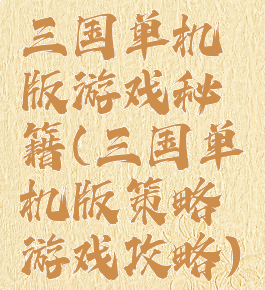 三国单机
版游戏秘
籍(三国单
机版策略
游戏攻略)